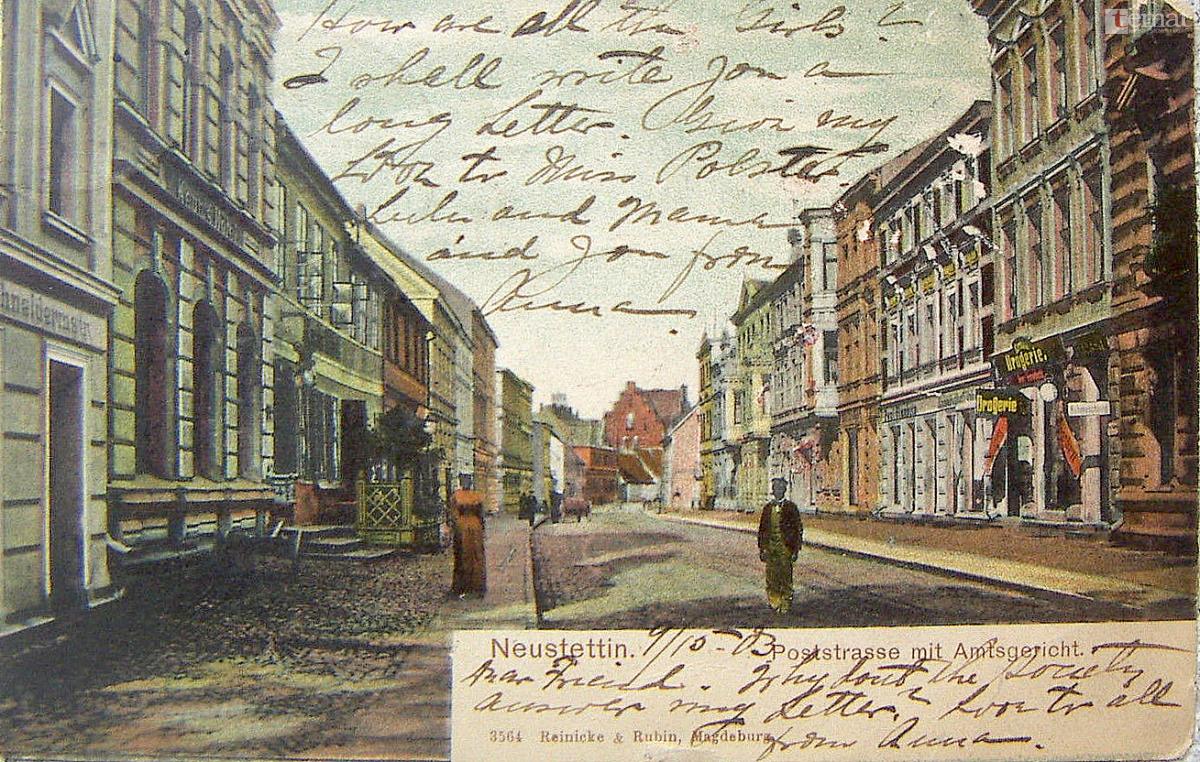 How are all the Girls?
I shall write you a
long Letter. Given my
Love to Miss Polster.
Lulu and Mama
and you from
Anna
Drogerie
Drogerie
Neustettin. 9/10-03 Poststrasse mit Amtsgericht.
Dear Friend. Why dont the Society
answer my Letter? Love to all
3564 Reinicke & Rubin, Magdeburg
from Anna.